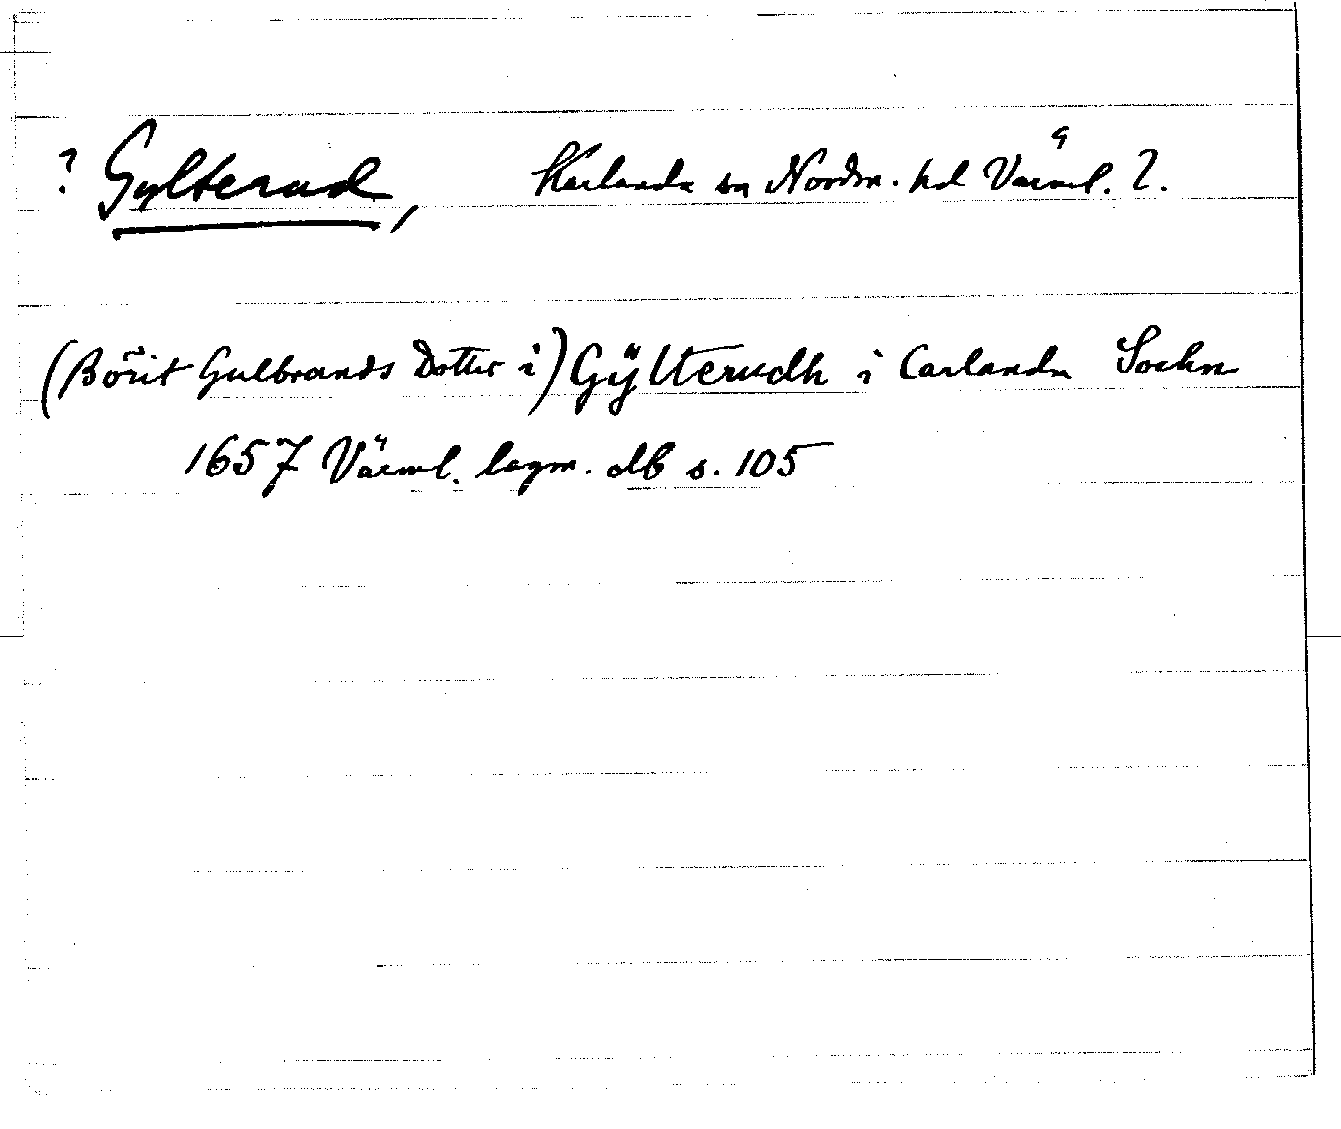 ? Gylterud, Karlanda sn Nordm. hd Värml. ?.
(Börit Gulbrands Dotter i) Gÿlterudh i Carlanda Sochn
1657 Värml. lagm. dlb s. 105